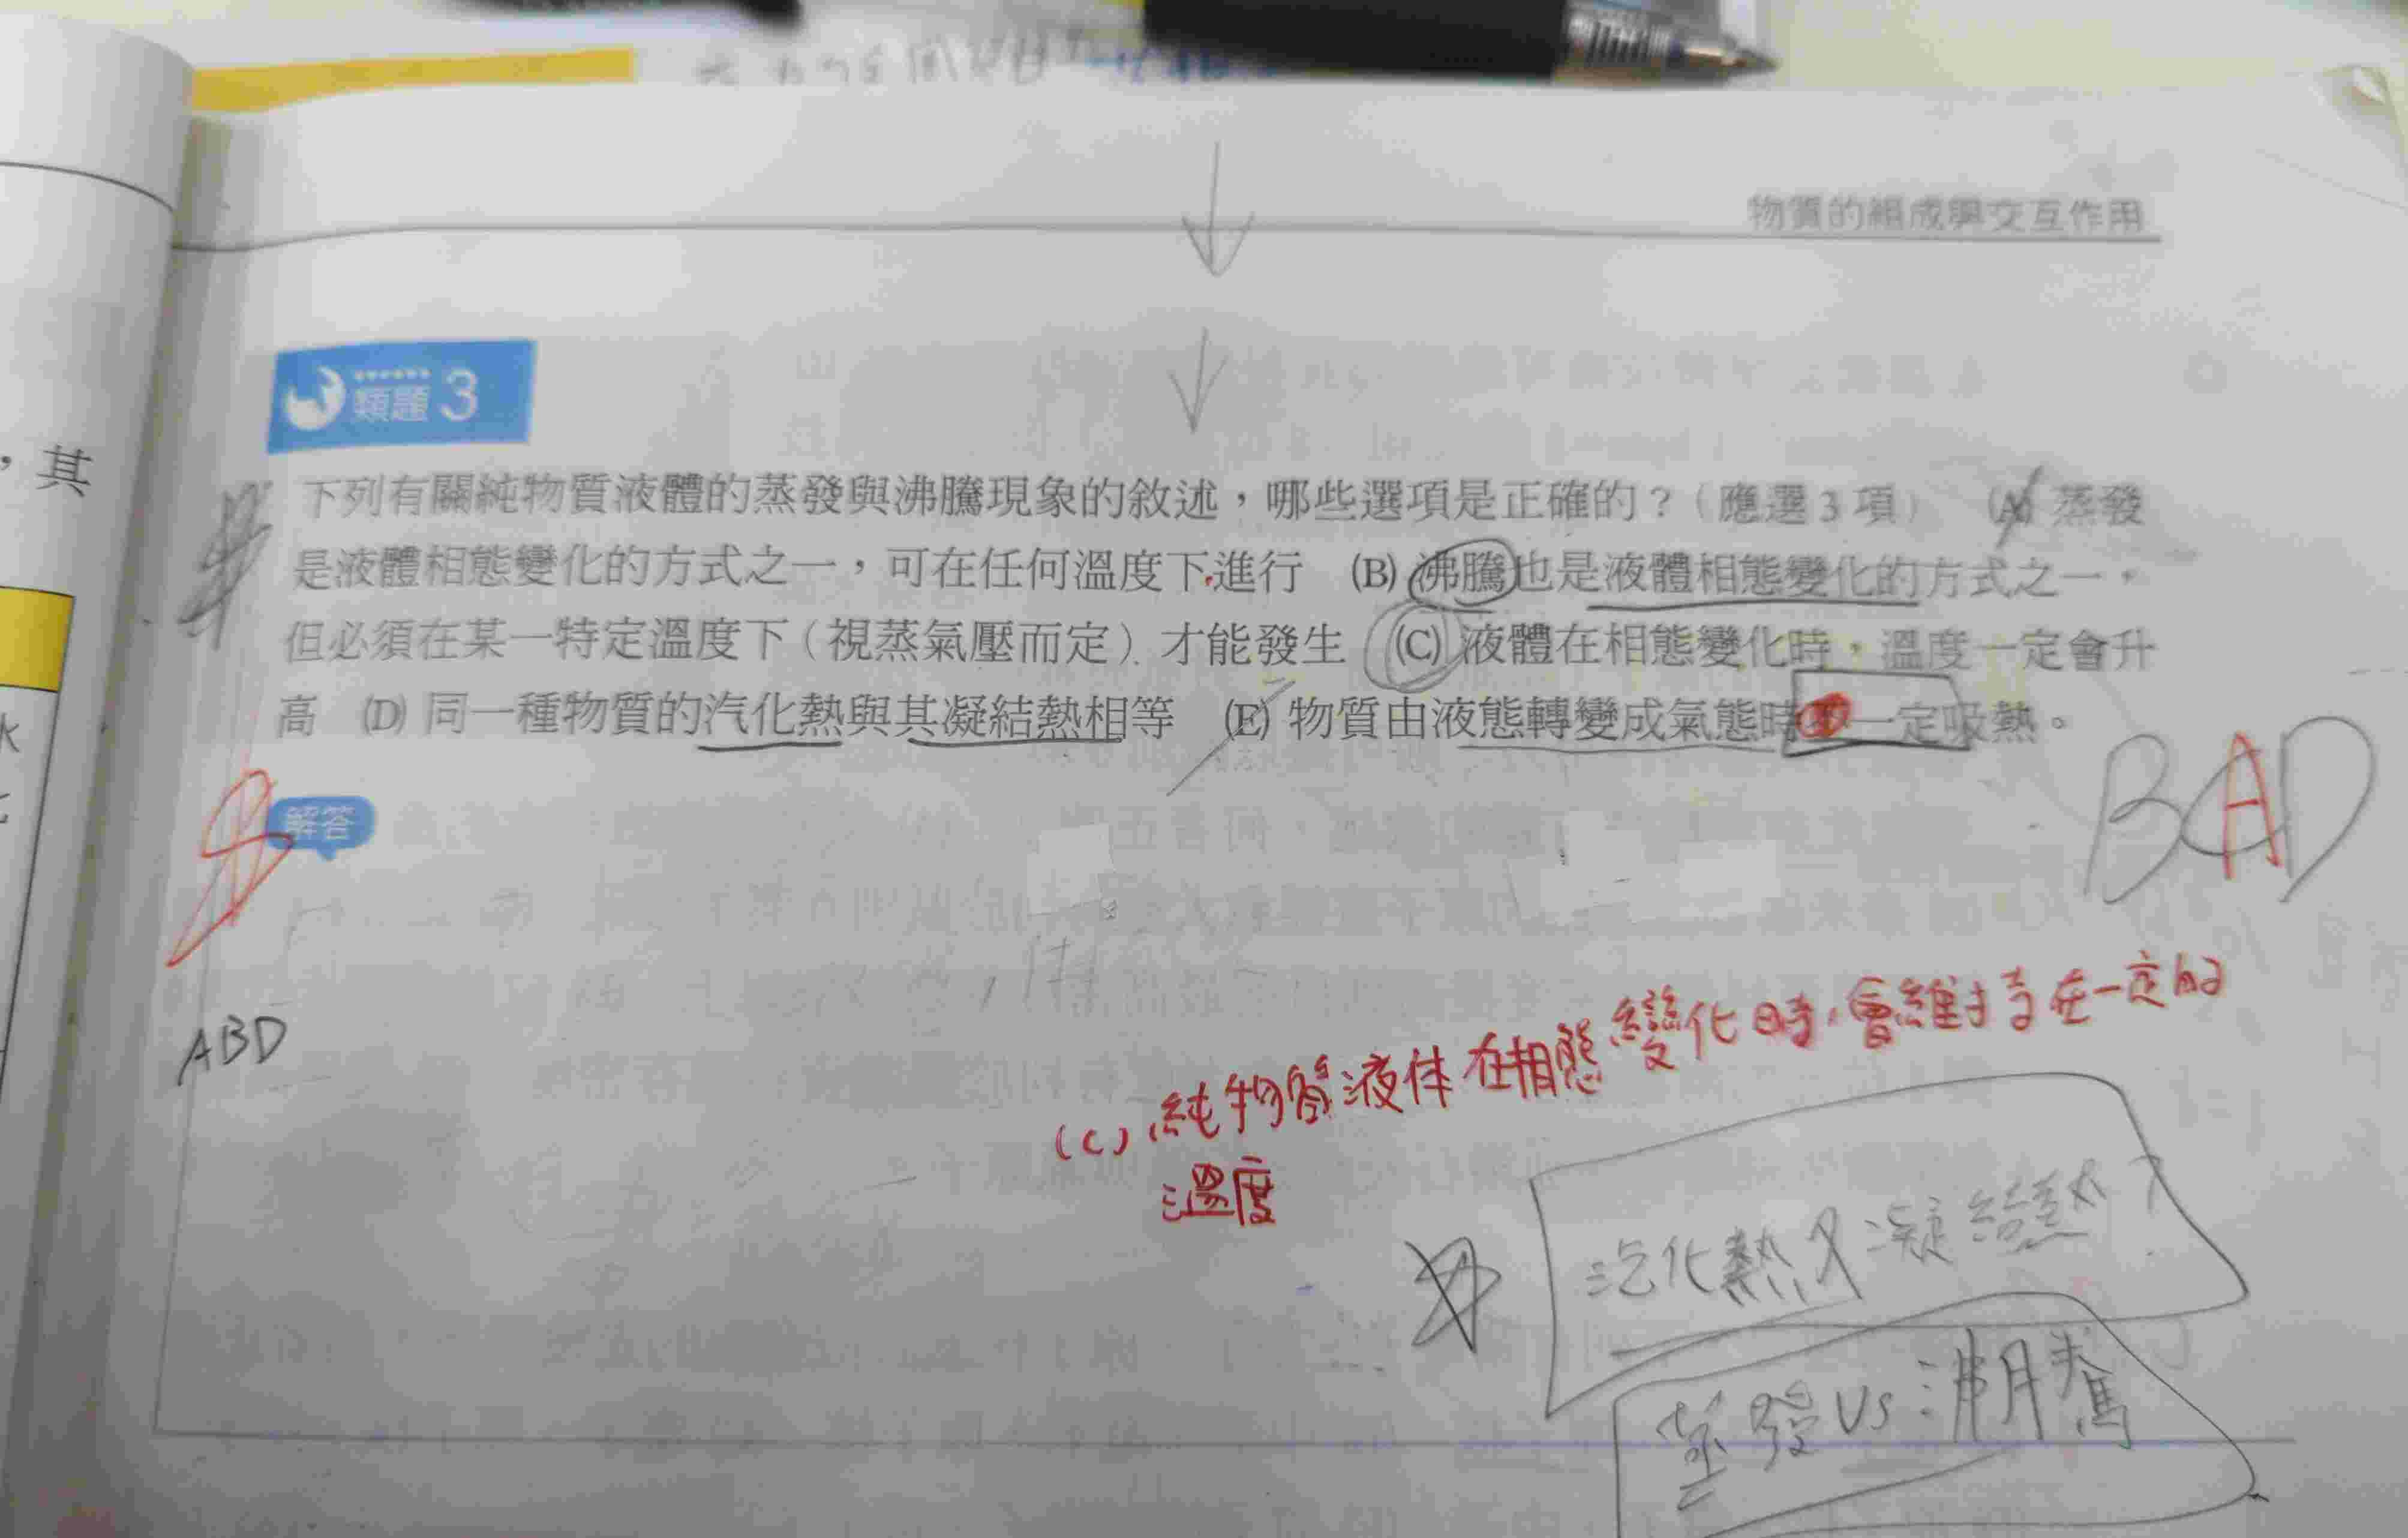 物質的組成與交互作用
，其
類題 3
下列有關純物質液體的蒸發與沸騰現象的敘述，哪些選項是正確的？（應選 3 項） (A) 蒸發
是液體相態變化的方式之一，可在任何溫度下進行 (B) 沸騰也是液體相態變化的方式之一，
但必須在某一特定溫度下（視蒸氣壓而定）才能發生 (C) 液體在相態變化時，溫度一定會升
高 (D) 同一種物質的汽化熱與其凝結熱相等 (E) 物質由液態轉變成氣態時 一定吸熱。
水
解答
BAD
ABD
(C) 純物質液体在相態變化時，會維持在一定的
溫度
汽化熱 凝結熱？
蒸發 VS 沸騰